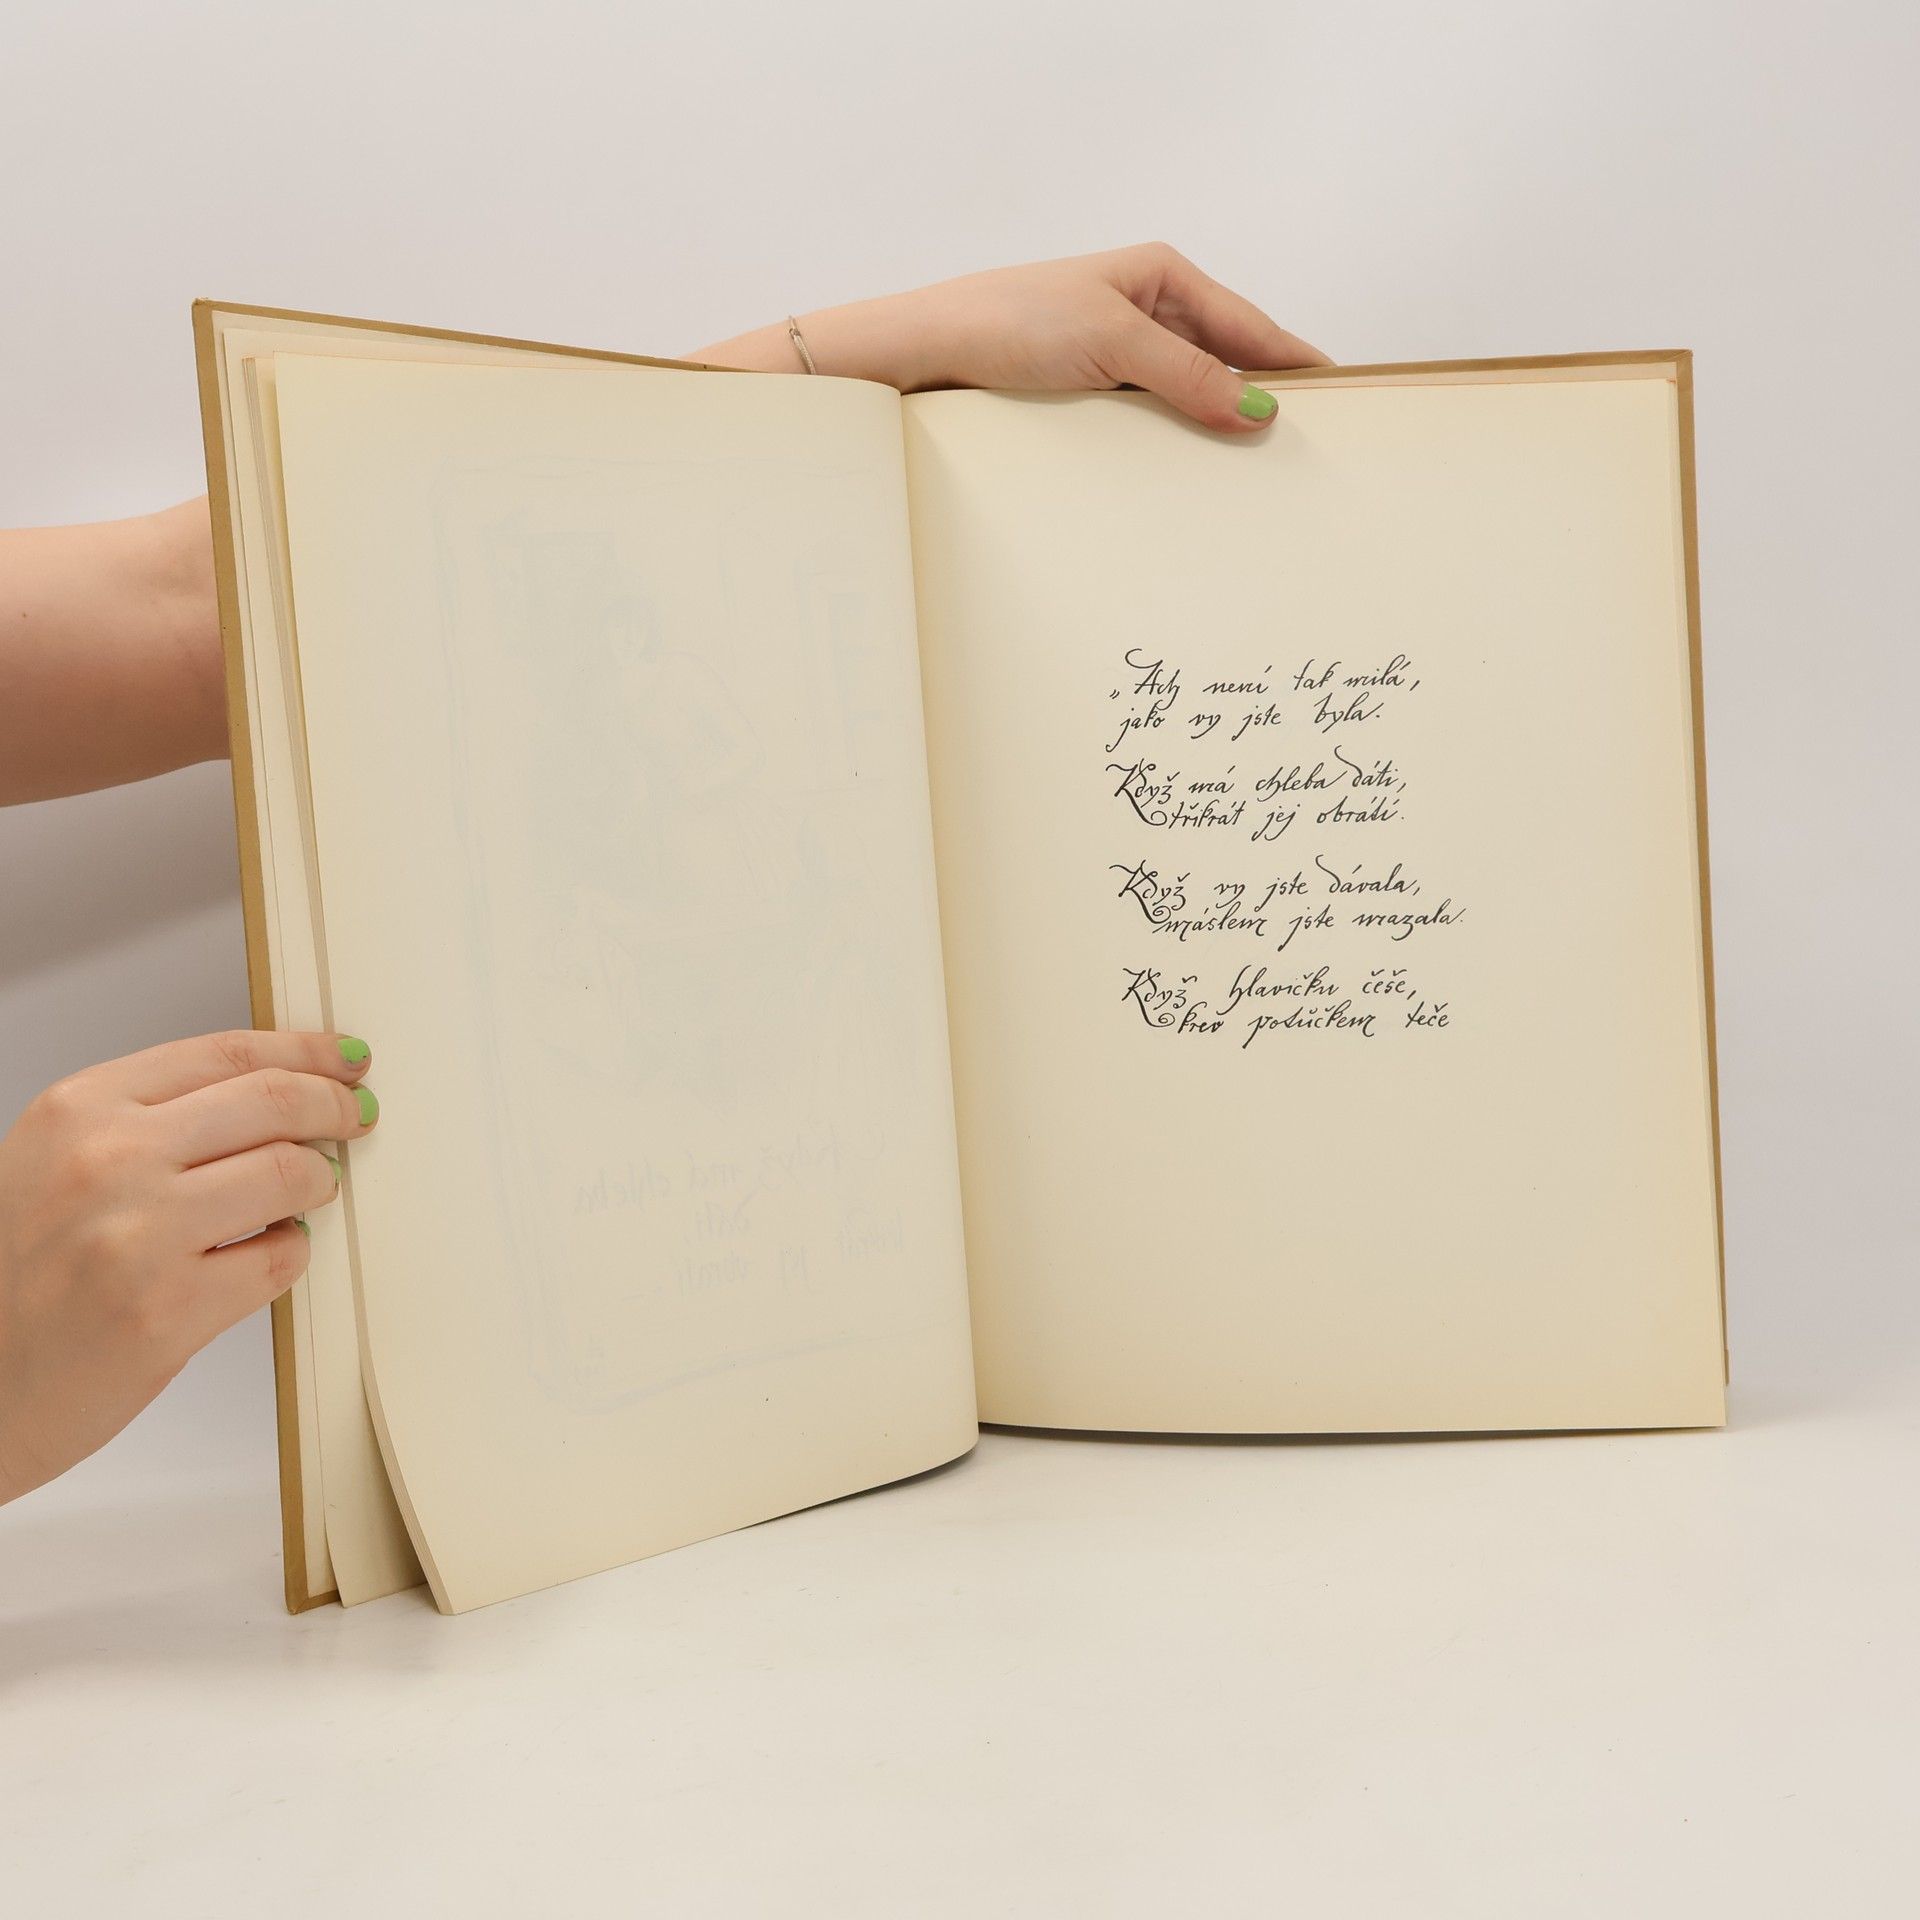 „Ach není tak milá,
jako vy jste byla.
Když má chleba dáti,
třikrát jej obrátí.
Když vy jste dávala,
máslem jste mazala.
Když hlavičku češe,
krev potůčkem teče